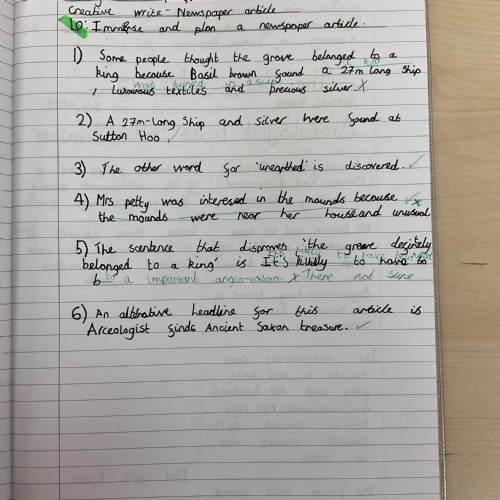 Creative write - Newspaper article
LO: Immerse and plan a newspaper article.
1) Some people thought the grove belonged to a
king because Basil brown found a 27m long ship
was buried in a ship
, luxurious textiles and precious silver. x
2) A 27m-long ship and silver were found at
Sutton Hoo ✓
3) The other word for 'unearthed' is discovered. ✓
4) Mrs petty was interesed in the mounds because
the mounds were near her house and unusual
5) The sentence that disproves 'the grove
belonged to a king' is It's to have
to a important anglo-saxon. x There not sure
6) An headline for this article is
Arceologist finds Ancient Saxon treasure. ✓